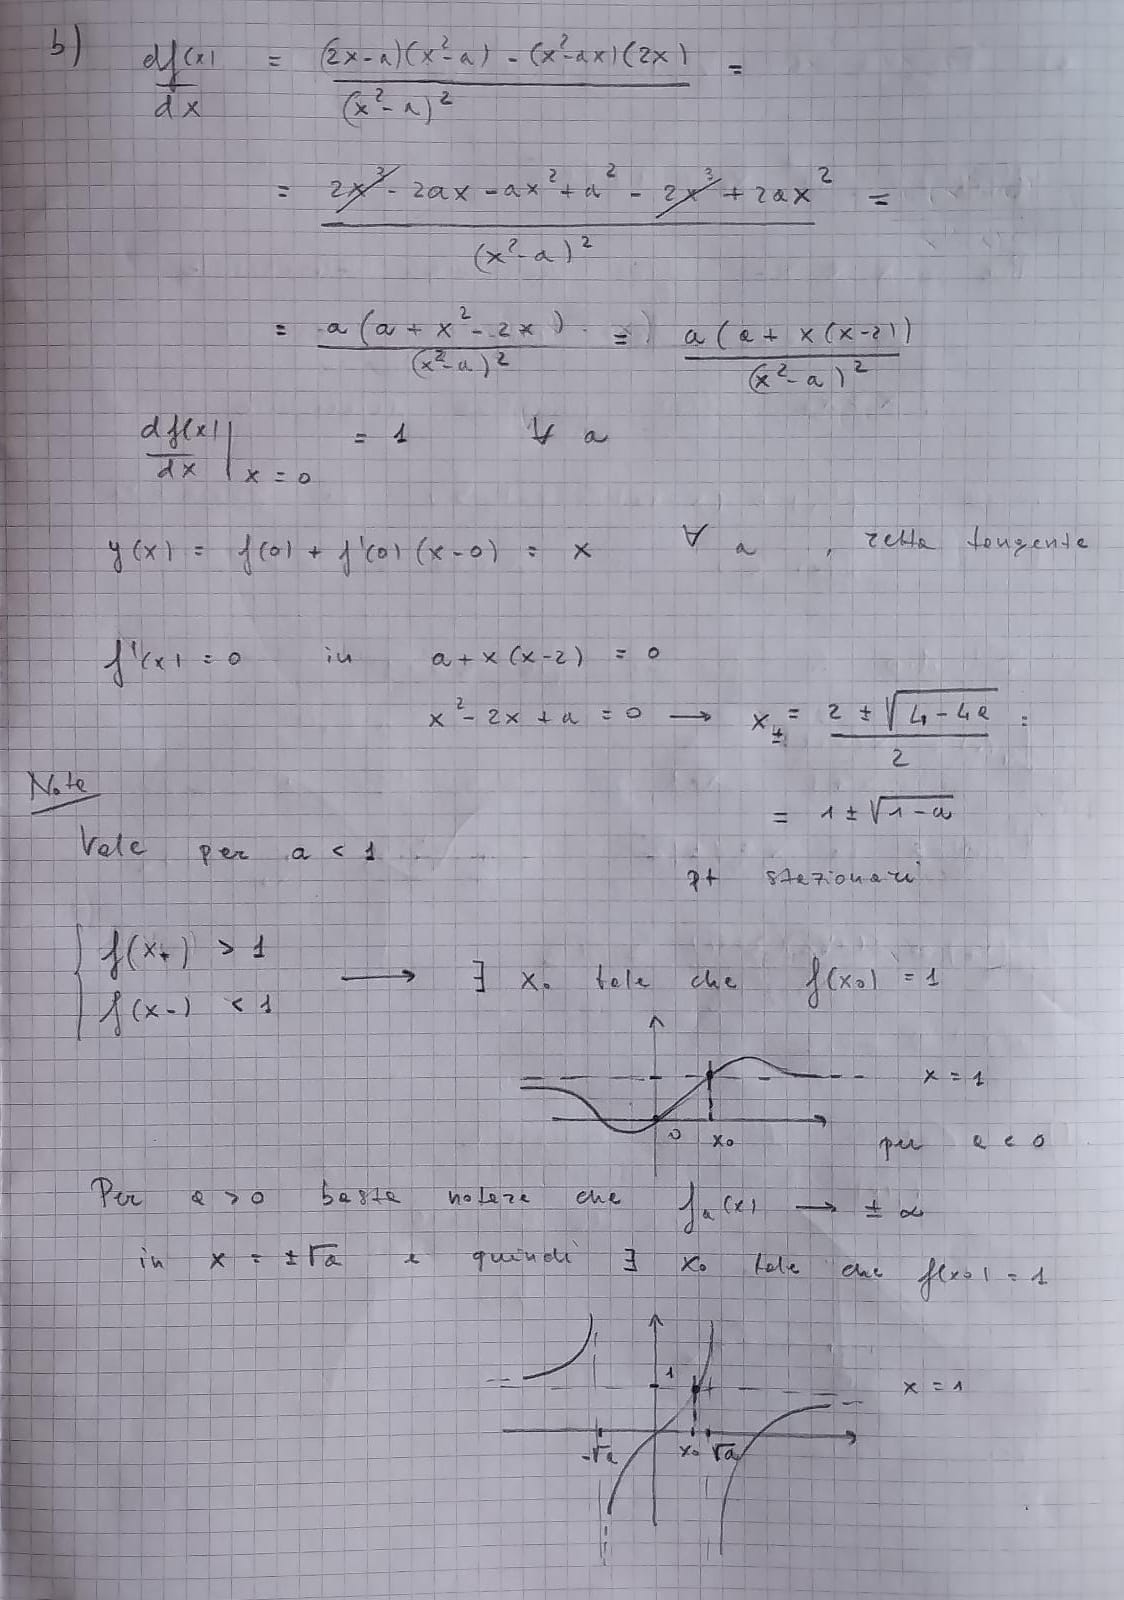 b) df(x)/dx = ((2x-a)(x²-a) - (x²-ax)(2x))/(x²-a)² =
= (2x³ - 2ax - ax² + a² - 2x³ + 2ax²)/(x²-a)² =
= a(a + x² - 2x)/(x²-a)² = a(a + x(x-2))/(x²-a)²
df(x)/dx |x=0 = 1 ∀ a
y(x) = f(0) + f'(0)(x-0) = x ∀ a , retta tangente
f'(x) = 0 in a + x(x-2) = 0
x² - 2x + a = 0 → x± = (2 ± √(4-4a))/2 =
Note
= 1 ± √(1-a)
Vale per a < 1
pt stazionari
{ f(x+) > 1
f(x-) < 1 → ∃ x₀ tale che f(x₀) = 1
x = 1
0 x₀
per a < 0
Per a > 0 basta notare che fₐ(x) → ± ∞
in x = ±√a e quindi ∃ x₀ tale che f(x₀) = 1
1 x = 1
-√a x₀ √a